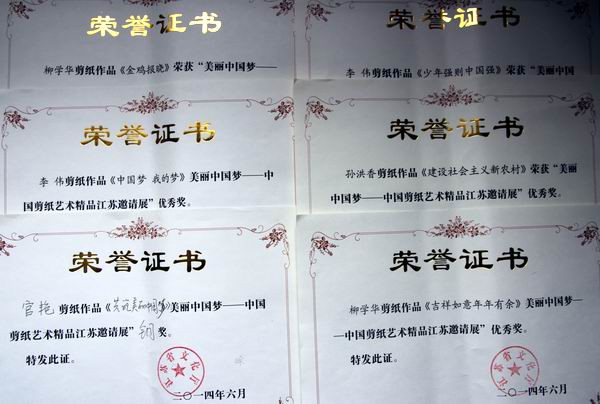 荣誉证书
柳学华剪纸作品《金鸡报晓》荣获“美丽中国梦——
荣誉证书
李 伟剪纸作品《少年强则中国强》荣获“美丽中国
荣誉证书
李 伟剪纸作品《中国梦 我的梦》美丽中国梦——中
国剪纸艺术精品江苏邀请展”优秀奖。
荣誉证书
孙洪香剪纸作品《建设社会主义新农村》荣获“美丽
中国梦——中国剪纸艺术精品江苏邀请展”优秀奖。
荣誉证书
官艳 剪纸作品《共筑美丽中国梦》美丽中国梦——中国
剪纸艺术精品江苏邀请展” 铜 奖。
特发此证。
江苏省文化厅
二〇一四年六月
荣誉证书
柳学华剪纸作品《吉祥如意年年有余》美丽中国梦—
—中国剪纸艺术精品江苏邀请展”优秀奖。
特发此证。
江苏省文化厅
二〇一四年六月